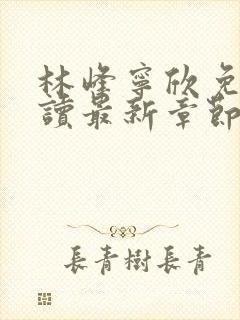 林峰寧欣免
讀最新章節
長青樹長青